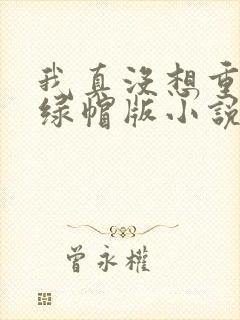 我真没想重
绿帽版小说
曾永權